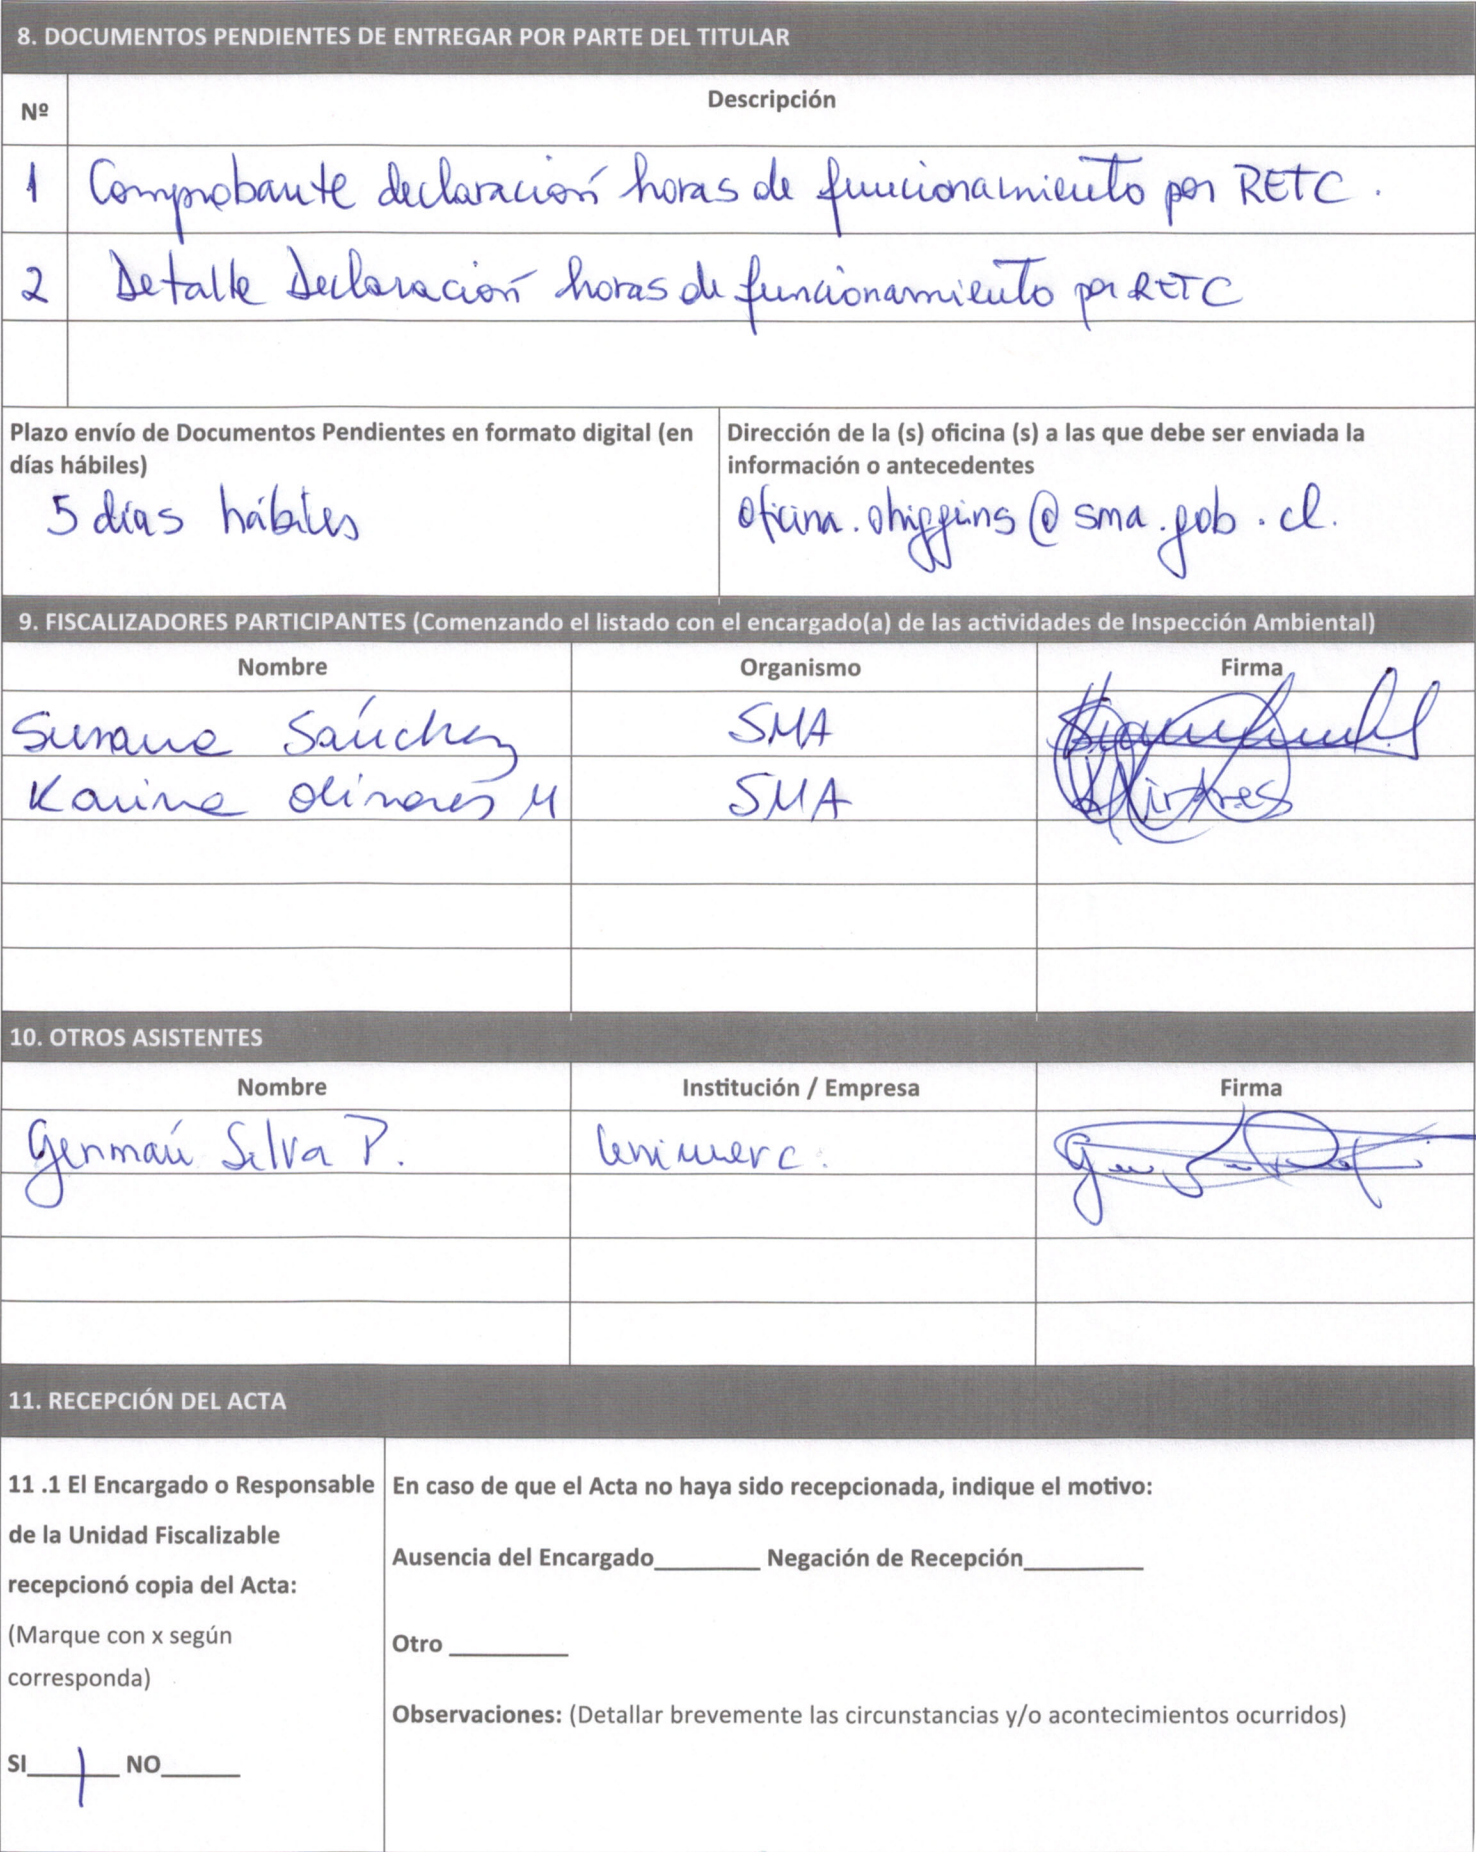 8. DOCUMENTOS PENDIENTES DE ENTREGAR POR PARTE DEL TITULAR
Nº Descripción
1 Comprobante declaración horas de funcionamiento por RETC.
2 Detalle Declaración horas de funcionamiento por RETC
Plazo envío de Documentos Pendientes en formato digital (en
días hábiles)
5 días hábiles
Dirección de la (s) oficina (s) a las que debe ser enviada la
información o antecedentes
oficina.ohiggins@sma.gob.cl.
9. FISCALIZADORES PARTICIPANTES (Comenzando el listado con el encargado(a) de las actividades de Inspección Ambiental)
Nombre Organismo Firma
Susana Sánchez SMA
Karina Olivares M SMA
10. OTROS ASISTENTES
Nombre Institución / Empresa Firma
Germán Silva P. Unimarc.
11. RECEPCIÓN DEL ACTA
11 .1 El Encargado o Responsable
de la Unidad Fiscalizable
recepcionó copia del Acta:
(Marque con x según
corresponda)
SI___/___ NO______
En caso de que el Acta no haya sido recepcionada, indique el motivo:
Ausencia del Encargado________ Negación de Recepción_________
Otro _________
Observaciones: (Detallar brevemente las circunstancias y/o acontecimientos ocurridos)